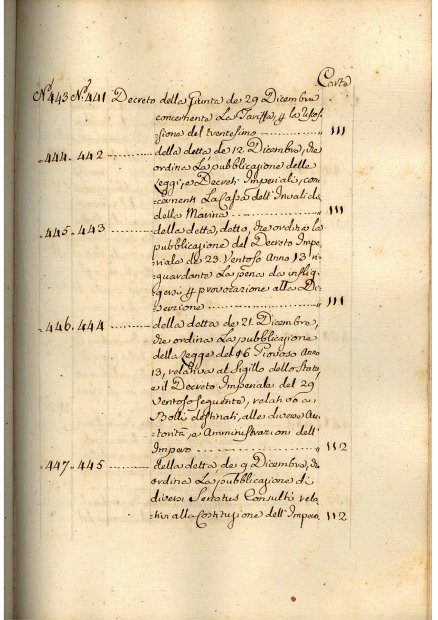 Carte
N.º 443 N.º 441 Decreto della Giunta de 29 Dicembre
concernente La Tariffa, p la
sione del ventesimo ............ 111
444. 442 ......... della detta de 12 Dicembre, che
ordina La pubblicazione delle
Leggi, e Decreti Imperiali, con-
cernenti La Cassa dell'Invalidi
della Marina ............ 111
445. 443 ......... della detta, detto, che ordina la
pubblicazione del Decreto Impe-
riale de 23 Ventoso Anno 13 ri-
guardante La pena da inflig-
gersi p provocazione alla Di-
serzione ............ 111
446. 444 ......... della detta de 21. Dicembre,
che ordina La pubblicazione
della Legge del 16 Piovoso Anno
13, relativa al Sigillo dello Stato,
e il Decreto Imperiale del 29
Ventoso seguente, relativo a i
Bolli destinati, alle diverse Au-
torità, e Amministrazioni dell'
Impero ............ 112
447. 445 ......... della detta de 9 Dicembre, che
ordina La pubblicazione di
diversi Senatus Consulti rela-
tivi alla Costituzione dell'Impero, 112